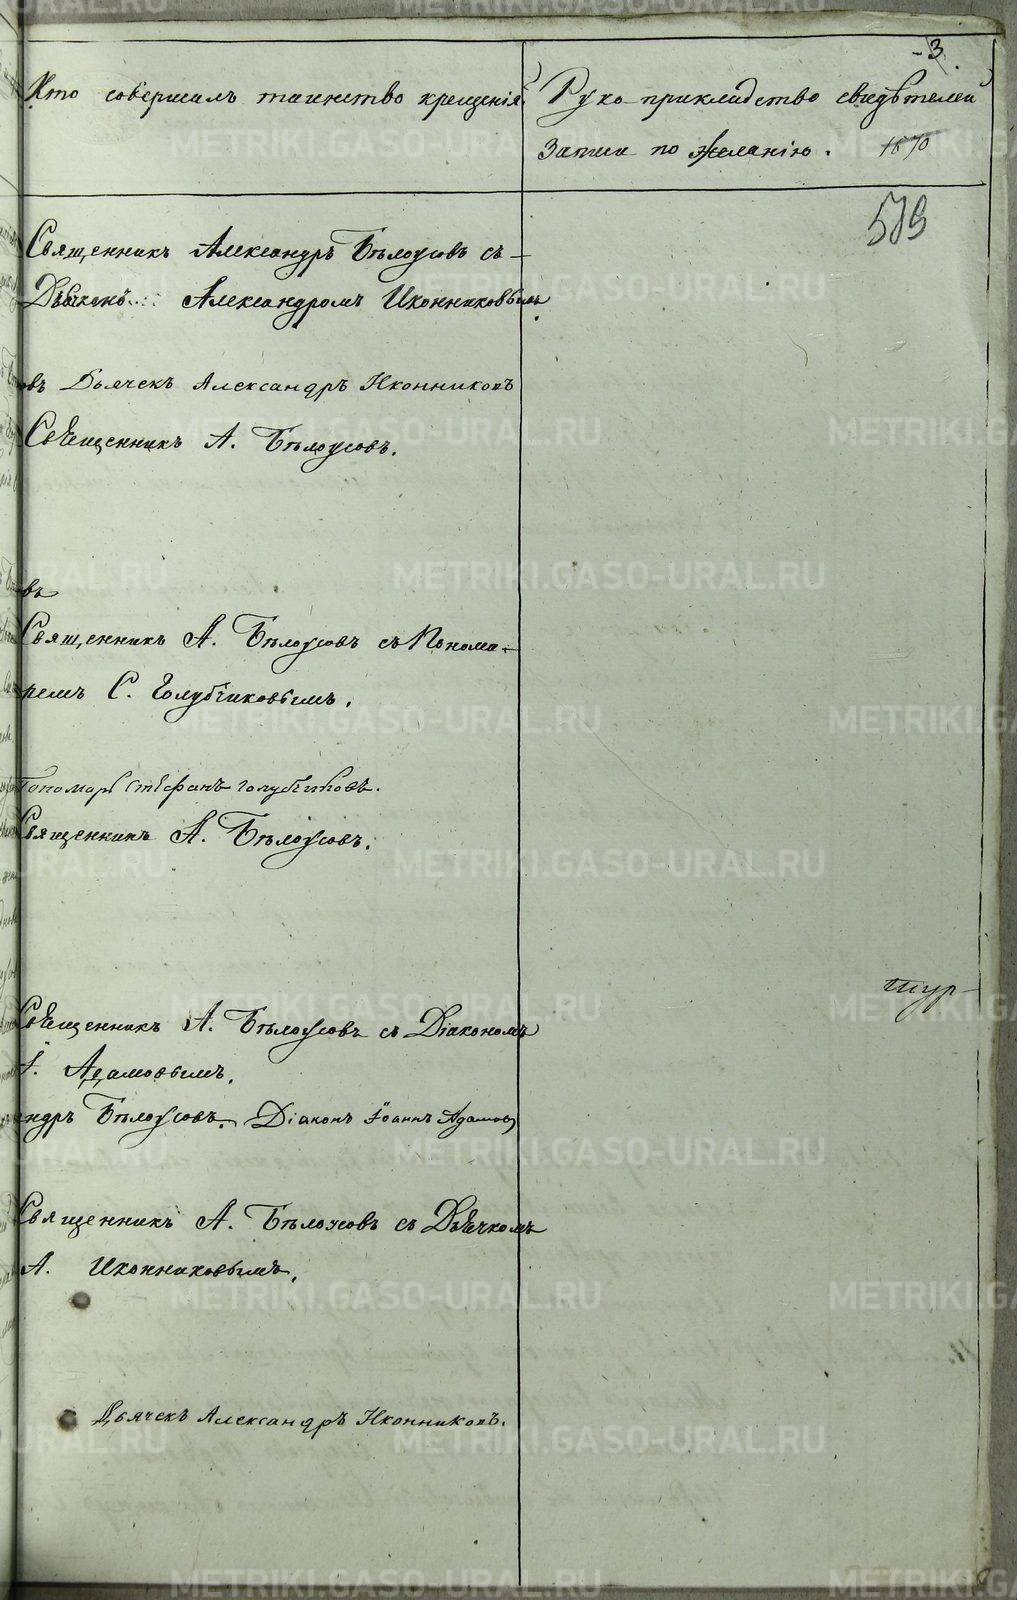 3
Кто совершалъ таинство крещенія
Рукоприкладство свидѣтелей
записи по желанію.
1670
579
Священникъ Александръ Бѣлоусовъ съ
Дьячкомъ Александромъ Иконниковымъ.
въ Дьячекъ Александръ Иконниковъ
Священникъ А. Бѣлоусовъ.
въ
Священникъ А. Бѣлоусовъ съ Понома-
ремъ С. Голубчиковымъ.
Пономарь Стефанъ Голубчиковъ.
Священникъ А. Бѣлоусовъ.
тур-
Священникъ А. Бѣлоусовъ съ Діакономъ
І. Адамовымъ.
андръ Бѣлоусовъ. Діаконъ Іоаннъ Адамовъ
Священникъ А. Бѣлоусовъ съ Дьячкомъ
А. Иконниковымъ.
Дьячекъ Александръ Иконниковъ.
METRIKI.GASO-URAL.RU